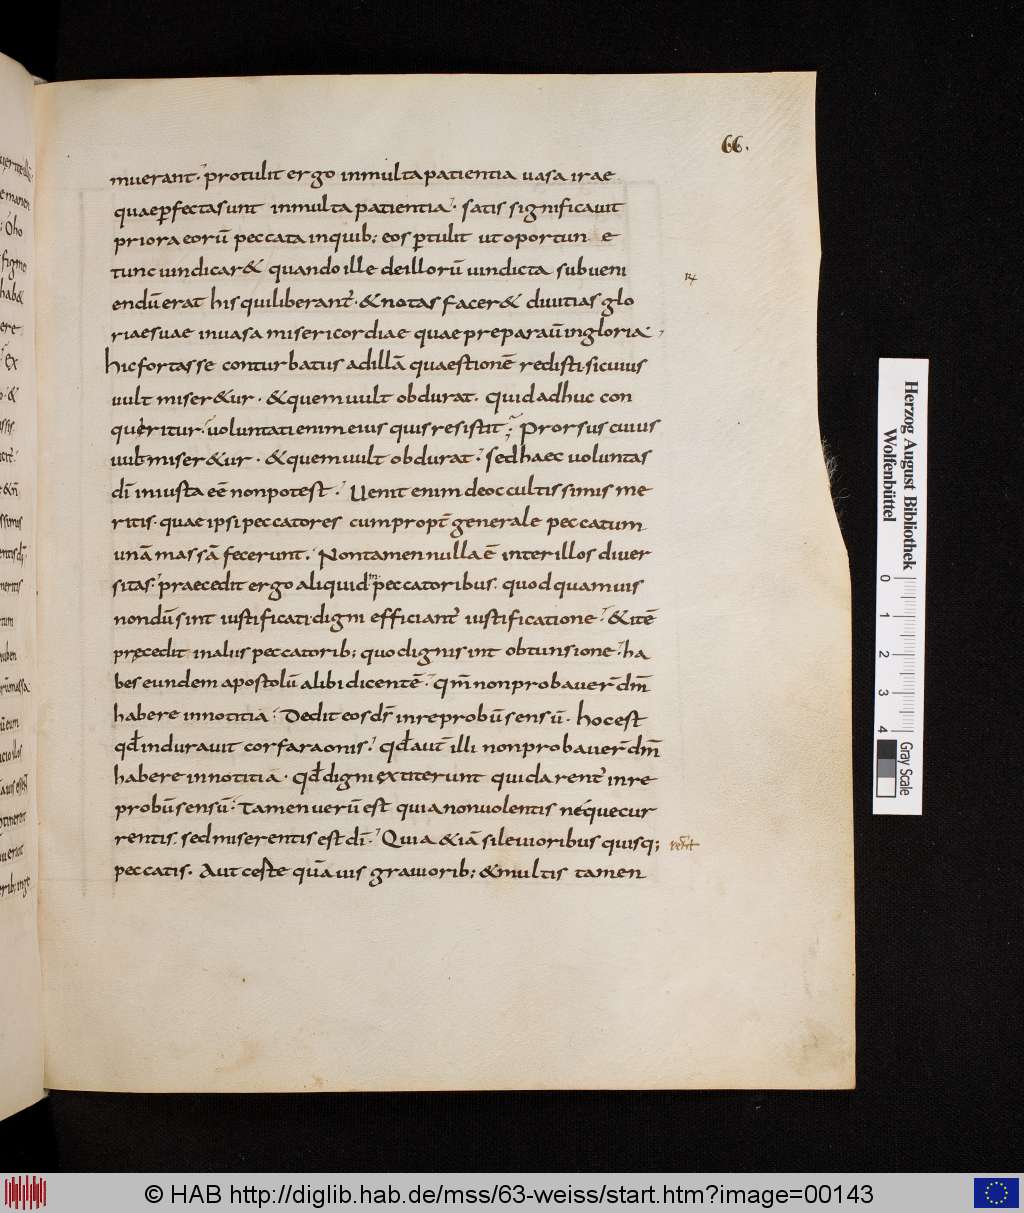 66.
muerant. protulit ergo inmulta patientia uasa irae
quae pfectasunt inmulta patientia. satis significauit
priora eorū peccata inquib; eos ptulit ut oportun e
tunc uindicar& quando ille deillorū uindicta subueni
endū erat his quiliberant̄. & notas facer& diuitias glo
riaesuae inuasa misericordiae quae preparauī ingloria.
hic fortasse conturbatus adillā quaestionē redisti. sicuius
uult miser&ur. & quem uult obdurat. quid adhuc con
queritur. uoluntati enim eius quis resistit; Prorsus cuius
uult miser&ur. & quem uult obdurat. sed haec uoluntas
dī iniusta eē non potest. Uenit enim deoccultissimis me
ritis. quae ipsi peccatores cum propt̄ generale peccatum
unā massā fecerunt. Non tamen nulla ē inter illos diuer
sitas. praecedit ergo aliquid in peccatoribus. quod quamuis
nondū sint iustificati. digni efficiant̄ iustificatione. & itē
pręcedit inaliis peccatorib; quo digni sint obtunsione. ha
bes eundem apostolū alibi dicentē. qm̄ non probauer̄ dm̄
habere innotitia. Dedit eos ds̄ inreprobū sensū. hoc est
qd̄ indurauit cor faraonis. qd̄ aut̄ illi non probauer̄ dm̄
habere innotitia. qd̄ digni extiterunt qui darent̄ inre
probū sensū. Tamen uerū est quia non uolentis neque cur
rentis. sed miserentis est dī. Quia & iā si leuioribus quisq;
peccatis. Aut ceste quāuis grauiorib; & multis tamen
Herzog August Bibliothek
Wolfenbüttel
0 1 2 3 4
Gray Scale
© HAB http://diglib.hab.de/mss/63-weiss/start.htm?image=00143